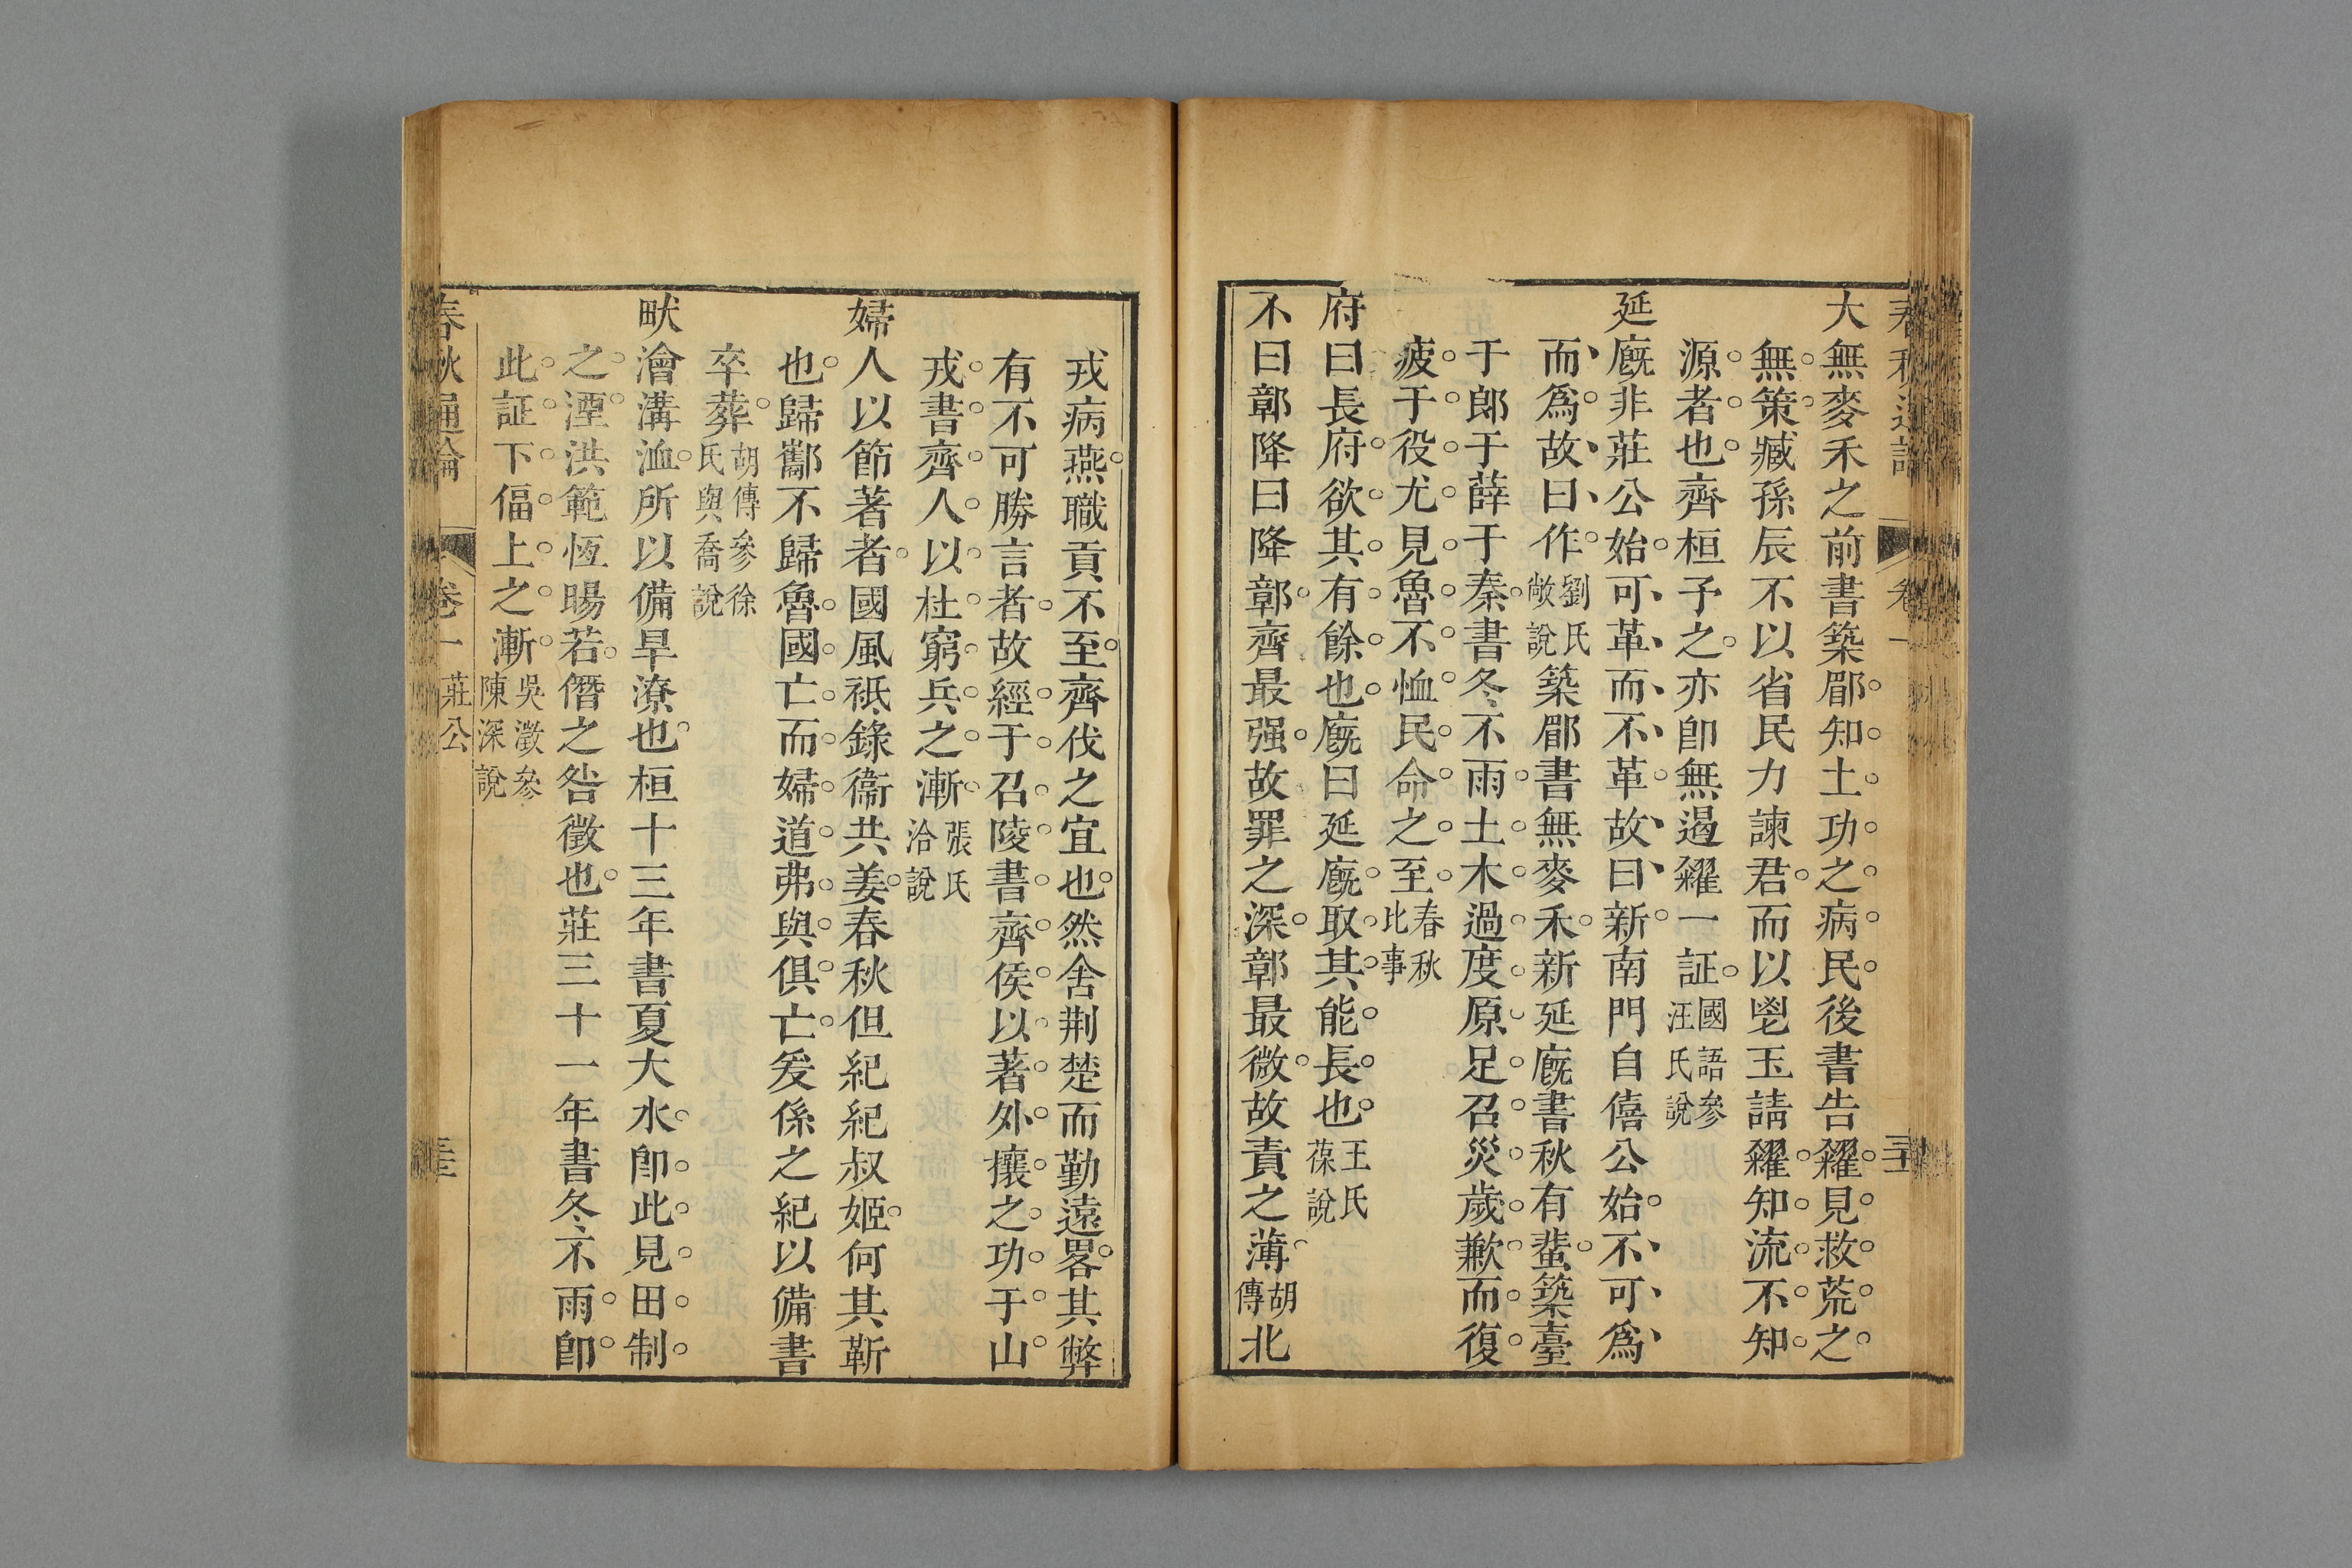 大無麥禾之前書築郿知土功之病民後書告糴見救荒之
無策臧孫辰不以省民力諫君而以鬯玉請糴知流不知
源者也齊桓予之亦卽無遏糴一証國語參汪氏說
延廐非莊公始可革而不革故曰新南門自僖公始不可爲
而爲故曰作劉氏敞說築郿書無麥禾新延廐書秋有蜚築臺
于郎于薛于秦書冬不雨土木過度原足召災歲歉而復
疲于役尤見魯不恤民命之至春秋比事
府曰長府欲其有餘也廐曰延廐取其能長也王氏葆說
不曰鄣降曰降鄣齊最强故罪之深鄣最微故責之薄胡傳北
戎病燕職貢不至齊伐之宜也然舍荆楚而勤遠畧其弊
有不可勝言者故經于召陵書齊侯以著外攘之功于山
戎書齊人以杜窮兵之漸張氏洽說
婦人以節著者國風祇錄衞共姜春秋但紀紀叔姬何其靳
也歸酅不歸魯國亡而婦道弗與俱亡爰係之紀以備書
卒葬胡傳參徐氏與喬說
畎澮溝洫所以備旱潦也桓十三年書夏大水卽此見田制
之湮洪範恆暘若僭之咎徵也莊三十一年書冬不雨卽
此証下偪上之漸吳澂參陳深說
春秋通論 卷一 莊公